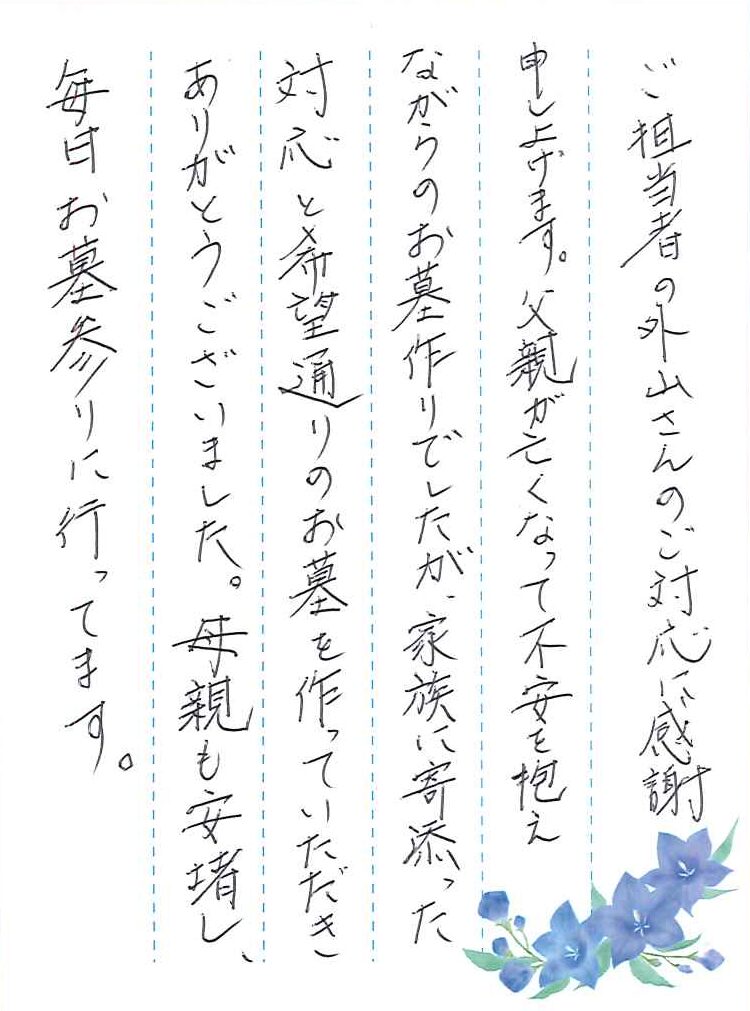 ご担当者の外山さんのご対応に感謝
申し上げます。父親が亡くなって不安を抱え
ながらのお墓作りでしたが、家族に寄添った
対応と希望通りのお墓を作っていただき
ありがとうございました。母親も安堵し、
毎日お墓参りに行ってます。